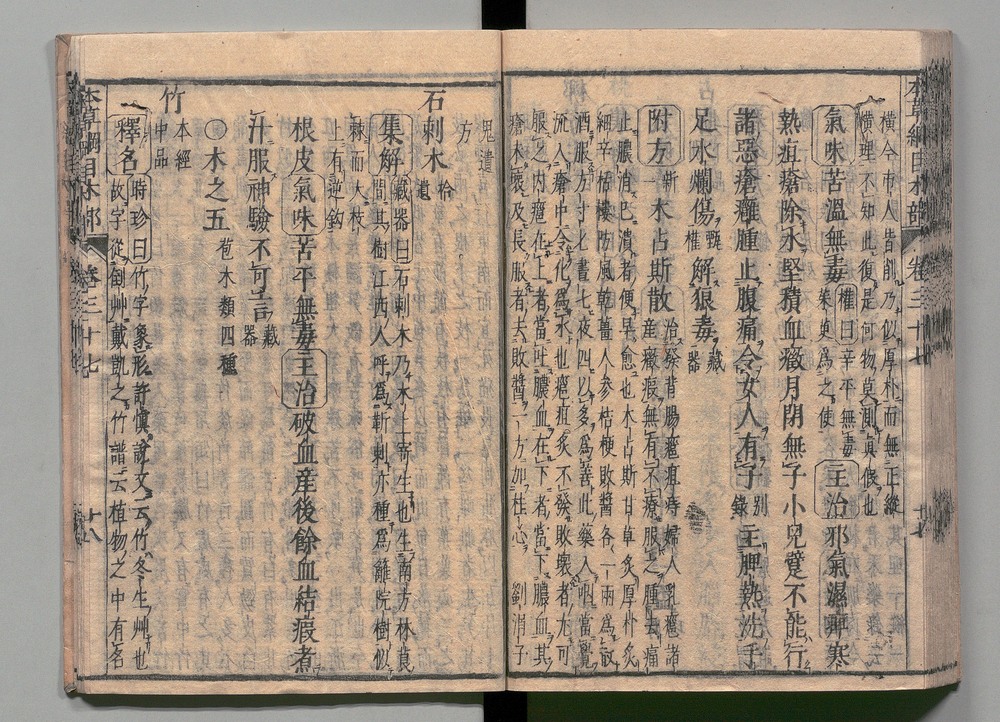 本草綱目木部 卷三十七 十七
橫今市人皆削乃似厚朴而無正縱
橫理不知此復是何物莫測真假也
氣味苦溫無毒 權曰辛平無毒 茱萸爲之使 主治邪氣濕痺寒
熱疽瘡除水堅積血癥月閉無子小兒躄不能行
諸惡瘡癰腫止腹痛令女人有子 別錄 主脾熱洗手
足水爛傷 甄權 解狼毒 藏器
附方 新一 木占斯散 治發背腸癰疽痔婦人乳癰諸
産癥瘕無有不療服之腫去痛
止膿消已潰者便早愈也木占斯甘草炙厚朴炙
細辛栝樓防風乾薑人參桔梗敗醬各一兩爲散
酒服方寸匕晝七夜四以多爲善此藥入咽當覺
流入瘡中令化爲水也癰疽灸不發敗壞者尤可
服之內癰在上者當吐膿血在下者當下膿血其
瘡未壞及長服者去敗醬一方加桂心 劉涓子
鬼遺
方
石刺木 拾遺
集解 藏器曰石刺木乃木上寄生也生南方林筤
間其樹江西人呼爲靳刺亦種爲籬院樹似
棘而大枝
上有逆鈎
根皮氣味苦平無毒主治破血産後餘血結瘕煮
汁服神驗不可言 藏器
○木之五 苞木類四種
竹 本經中品
釋名 時珍曰竹字象形許慎說文云竹冬生艸也
故字從倒艸戴凱之竹譜云植物之中有名
本草綱目木部 卷三十七 十八